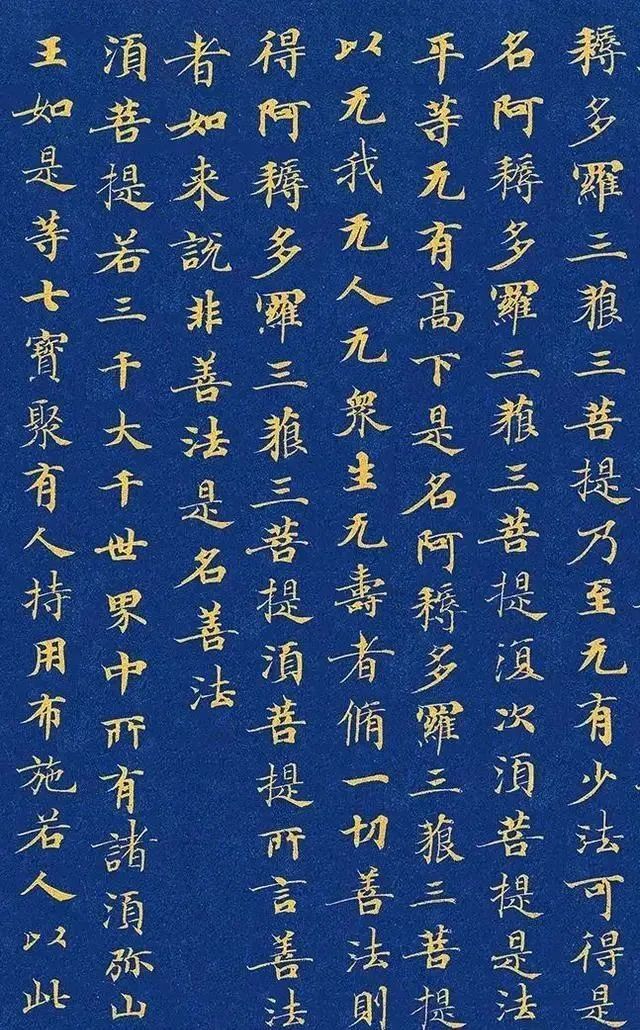 耨多羅三藐三菩提乃至无有少法可得是
名阿耨多羅三藐三菩提復次須菩提是法
平等无有高下是名阿耨多羅三藐三菩提
以无我无人无衆生无壽者脩一切善法則
得阿耨多羅三藐三菩提須菩提所言善法
者如来説非善法是名善法
須菩提若三千大千世界中所有諸須弥山
王如是等七寶聚有人持用布施若人以此